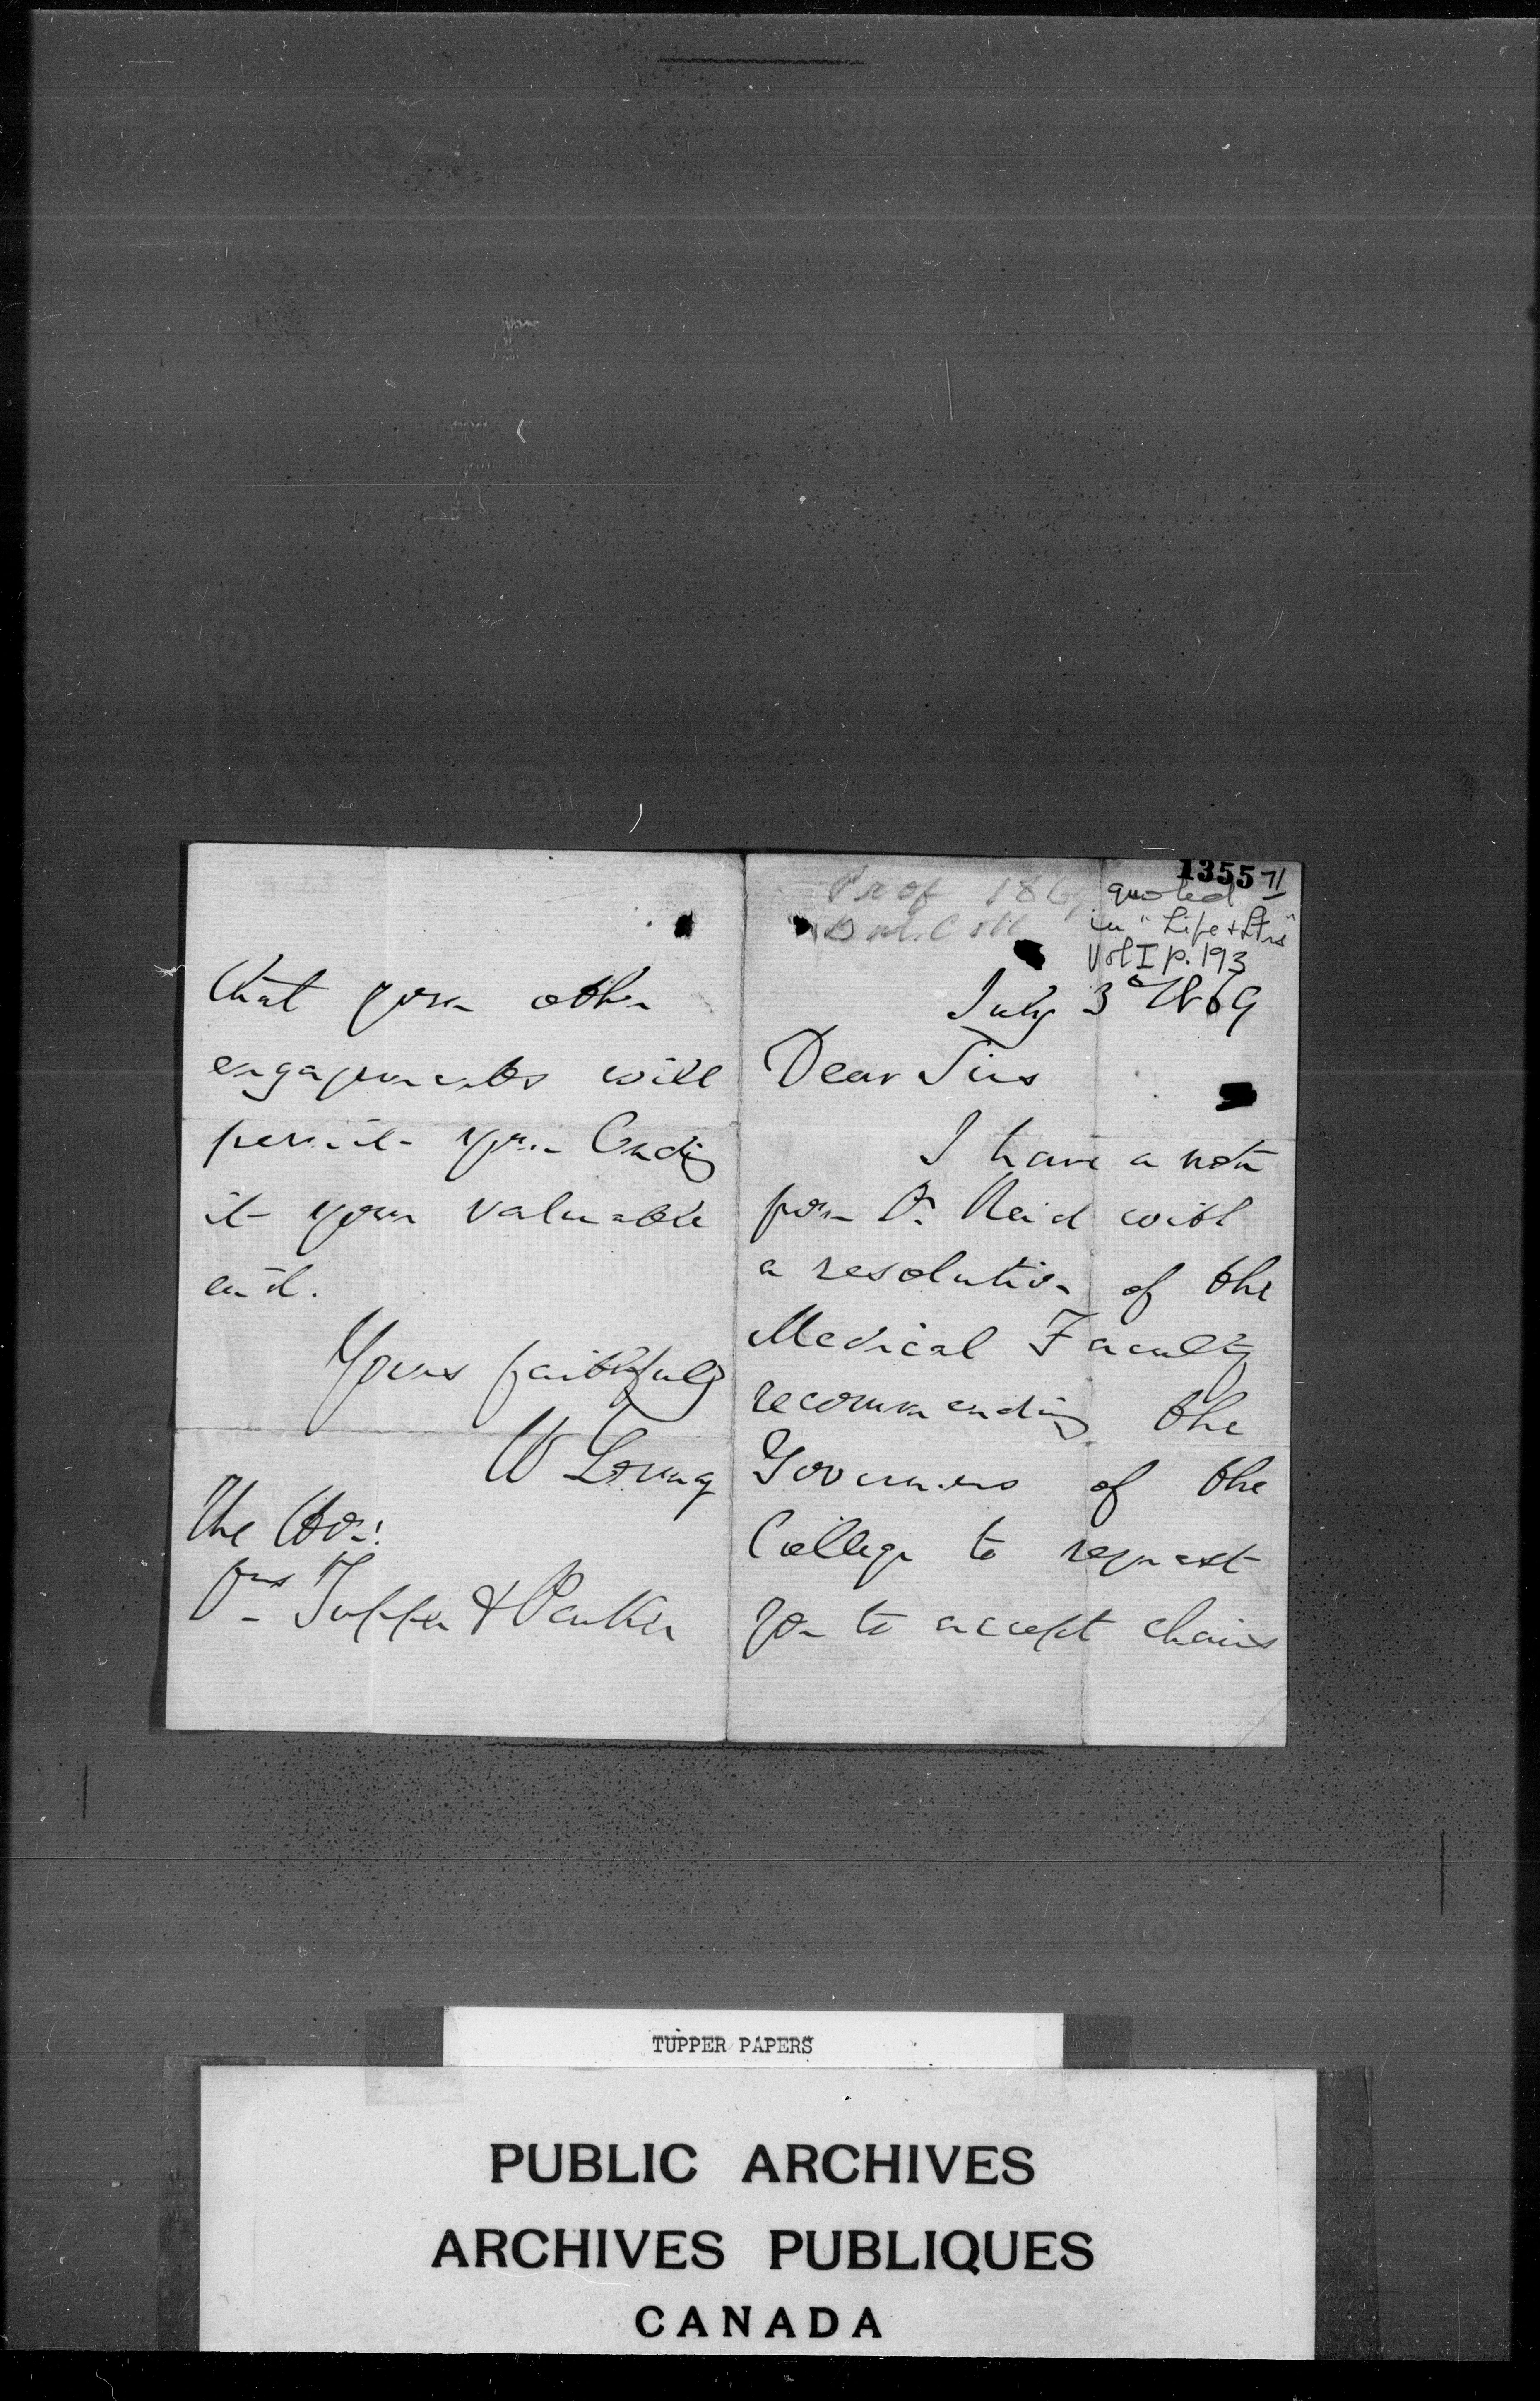 1355 71
Prof 1869
Dal. Coll
quoted
in "Life & Ltrs"
Vol I p. 193
July 3d 1869
Dear Sirs
I have a note
from Dr Reid with
a resolution of the
Medical Faculty
recommending the
Governors of the
College to request
you to accept chairs
that your other
engagements will
permit your lending
it your valuable
aid.
Yours faithfully
W Young
The Hon:
Drs Tupper & Parker
TUPPER PAPERS
PUBLIC ARCHIVES
ARCHIVES PUBLIQUES
CANADA